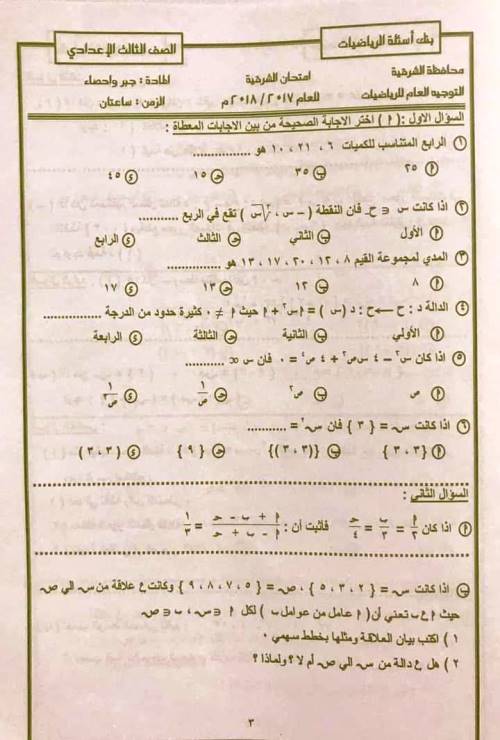 بنك أسئلة الرياضيات
الصف الثالث الإعدادي
محافظة الشرقية امتحان الشرقية المادة : جبر واحصاء
التوجيه العام للرياضيات للعام ٢٠١٧ / ٢٠١٨ م الزمن : ساعتان
السؤال الاول : ( ا ) اختر الاجابة الصحيحة من بين الاجابات المعطاة :
١ الرابع المتناسب للكميات ٦ ، ٢١ ، ١٠ هو ............
ا ٢٥ ب ٣٥ ج ١٥ د ٤٥
٢ اذا كانت س ∈ ح₋ فان النقطة ( – س ، ∛س ) تقع في الربع ..........
ا الأول ب الثاني ج الثالث د الرابع
٣ المدي لمجموعة القيم ٨ ، ١٢ ، ٢٠ ، ١٧ ، ١٣ هو ............
ا ٨ ب ١٢ ج ١٣ د ١٧
٤ الدالة د : ح ← ح : د ( س ) = ا س٢ + ا حيث ا ≠ ٠ كثيرة حدود من الدرجة ............
ا الأولي ب الثانية ج الثالثة د الرابعة
٥ اذا كان س٢ – ٤ س ص٢ + ٤ ص٤ = ٠ فان س ∝ ............
ا ص ب ص٢ ج ١/ص د ١/ص٢
٦ اذا كانت س = { ٣ } فان س٢ = ..........
ا { ٣ ، ٣ } ب {( ٣ ، ٣ )} ج { ٩ } د ( ٣ ، ٣ )
السؤال الثاني :
ا اذا كان ا/٢ = ب/٣ = ج/٤ فأثبت أن : (ا + ب - ج)/(ا - ب + ج) = ١/٣
ب اذا كانت س = { ٢ ، ٣ ، ٥ } ، ص = { ٥ ، ٧ ، ٨ ، ٩ } وكانت ع علاقة من س الي ص
حيث ا ع ب تعني أن ( ا عامل من عوامل ب ) لكل ا ∈ س ، ب ∈ ص
١ ) اكتب بيان العلاقة ومثلها بخطط سهمي ٠
٢ ) هل ع دالة من س الي ص أم لا ؟ ولماذا ؟
٣